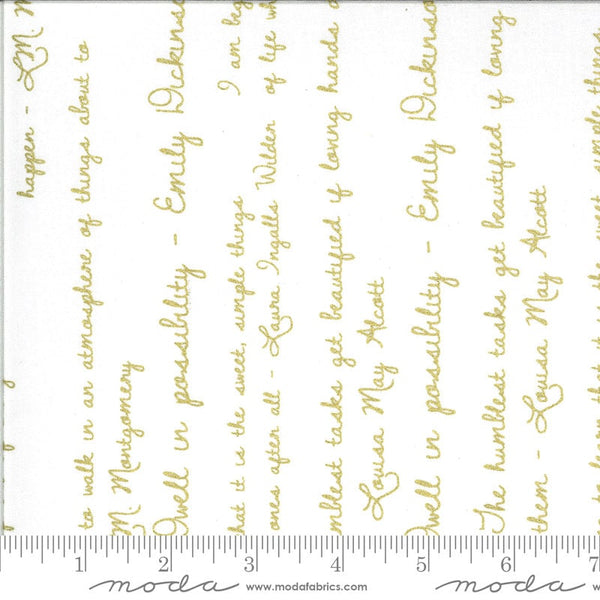 happen - L.M. M
to walk in an atmosphere of things about to
M. Montgomery
Dwell in possibility - Emily Dickinso
I am beg
hat it is the sweet, simple things
of life wh
ones after all - Laura Ingalls Wilder
mblest tasks get beautified if loving hands
Louisa May Alcott
Dwell in possibility - Emily Dickinso
The humblest tasks get beautified if loving
them - Louisa May Alcott
to learn that it is the sweet, simple things
1 2 3 4 5 6 7
moda www.modafabrics.com moda www.modafabrics.com